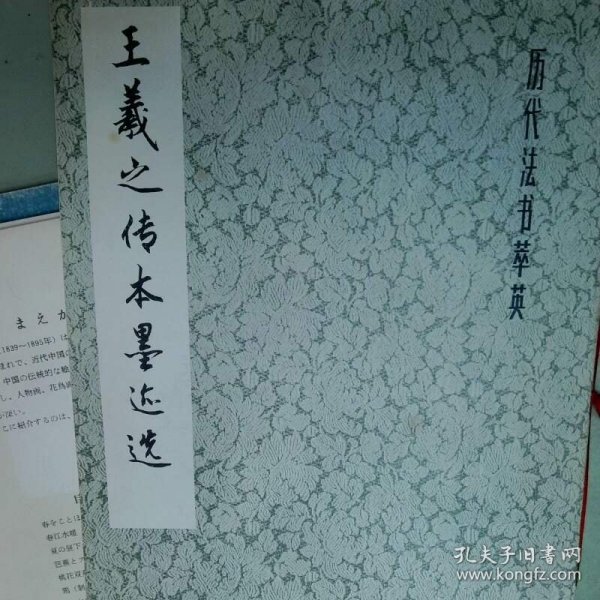 王羲之传本墨迹选
历代法书萃英
まえが
(1839〜1895年)は
まれで、近代中国の
中国の伝統的な絵
し、人物画、花鳥画
が深い。
こに紹介するのは、
春をことほ
春江水暖
夏の昼下
芭蕉と
桃花双
孔夫子旧书网
www.kongfz.com